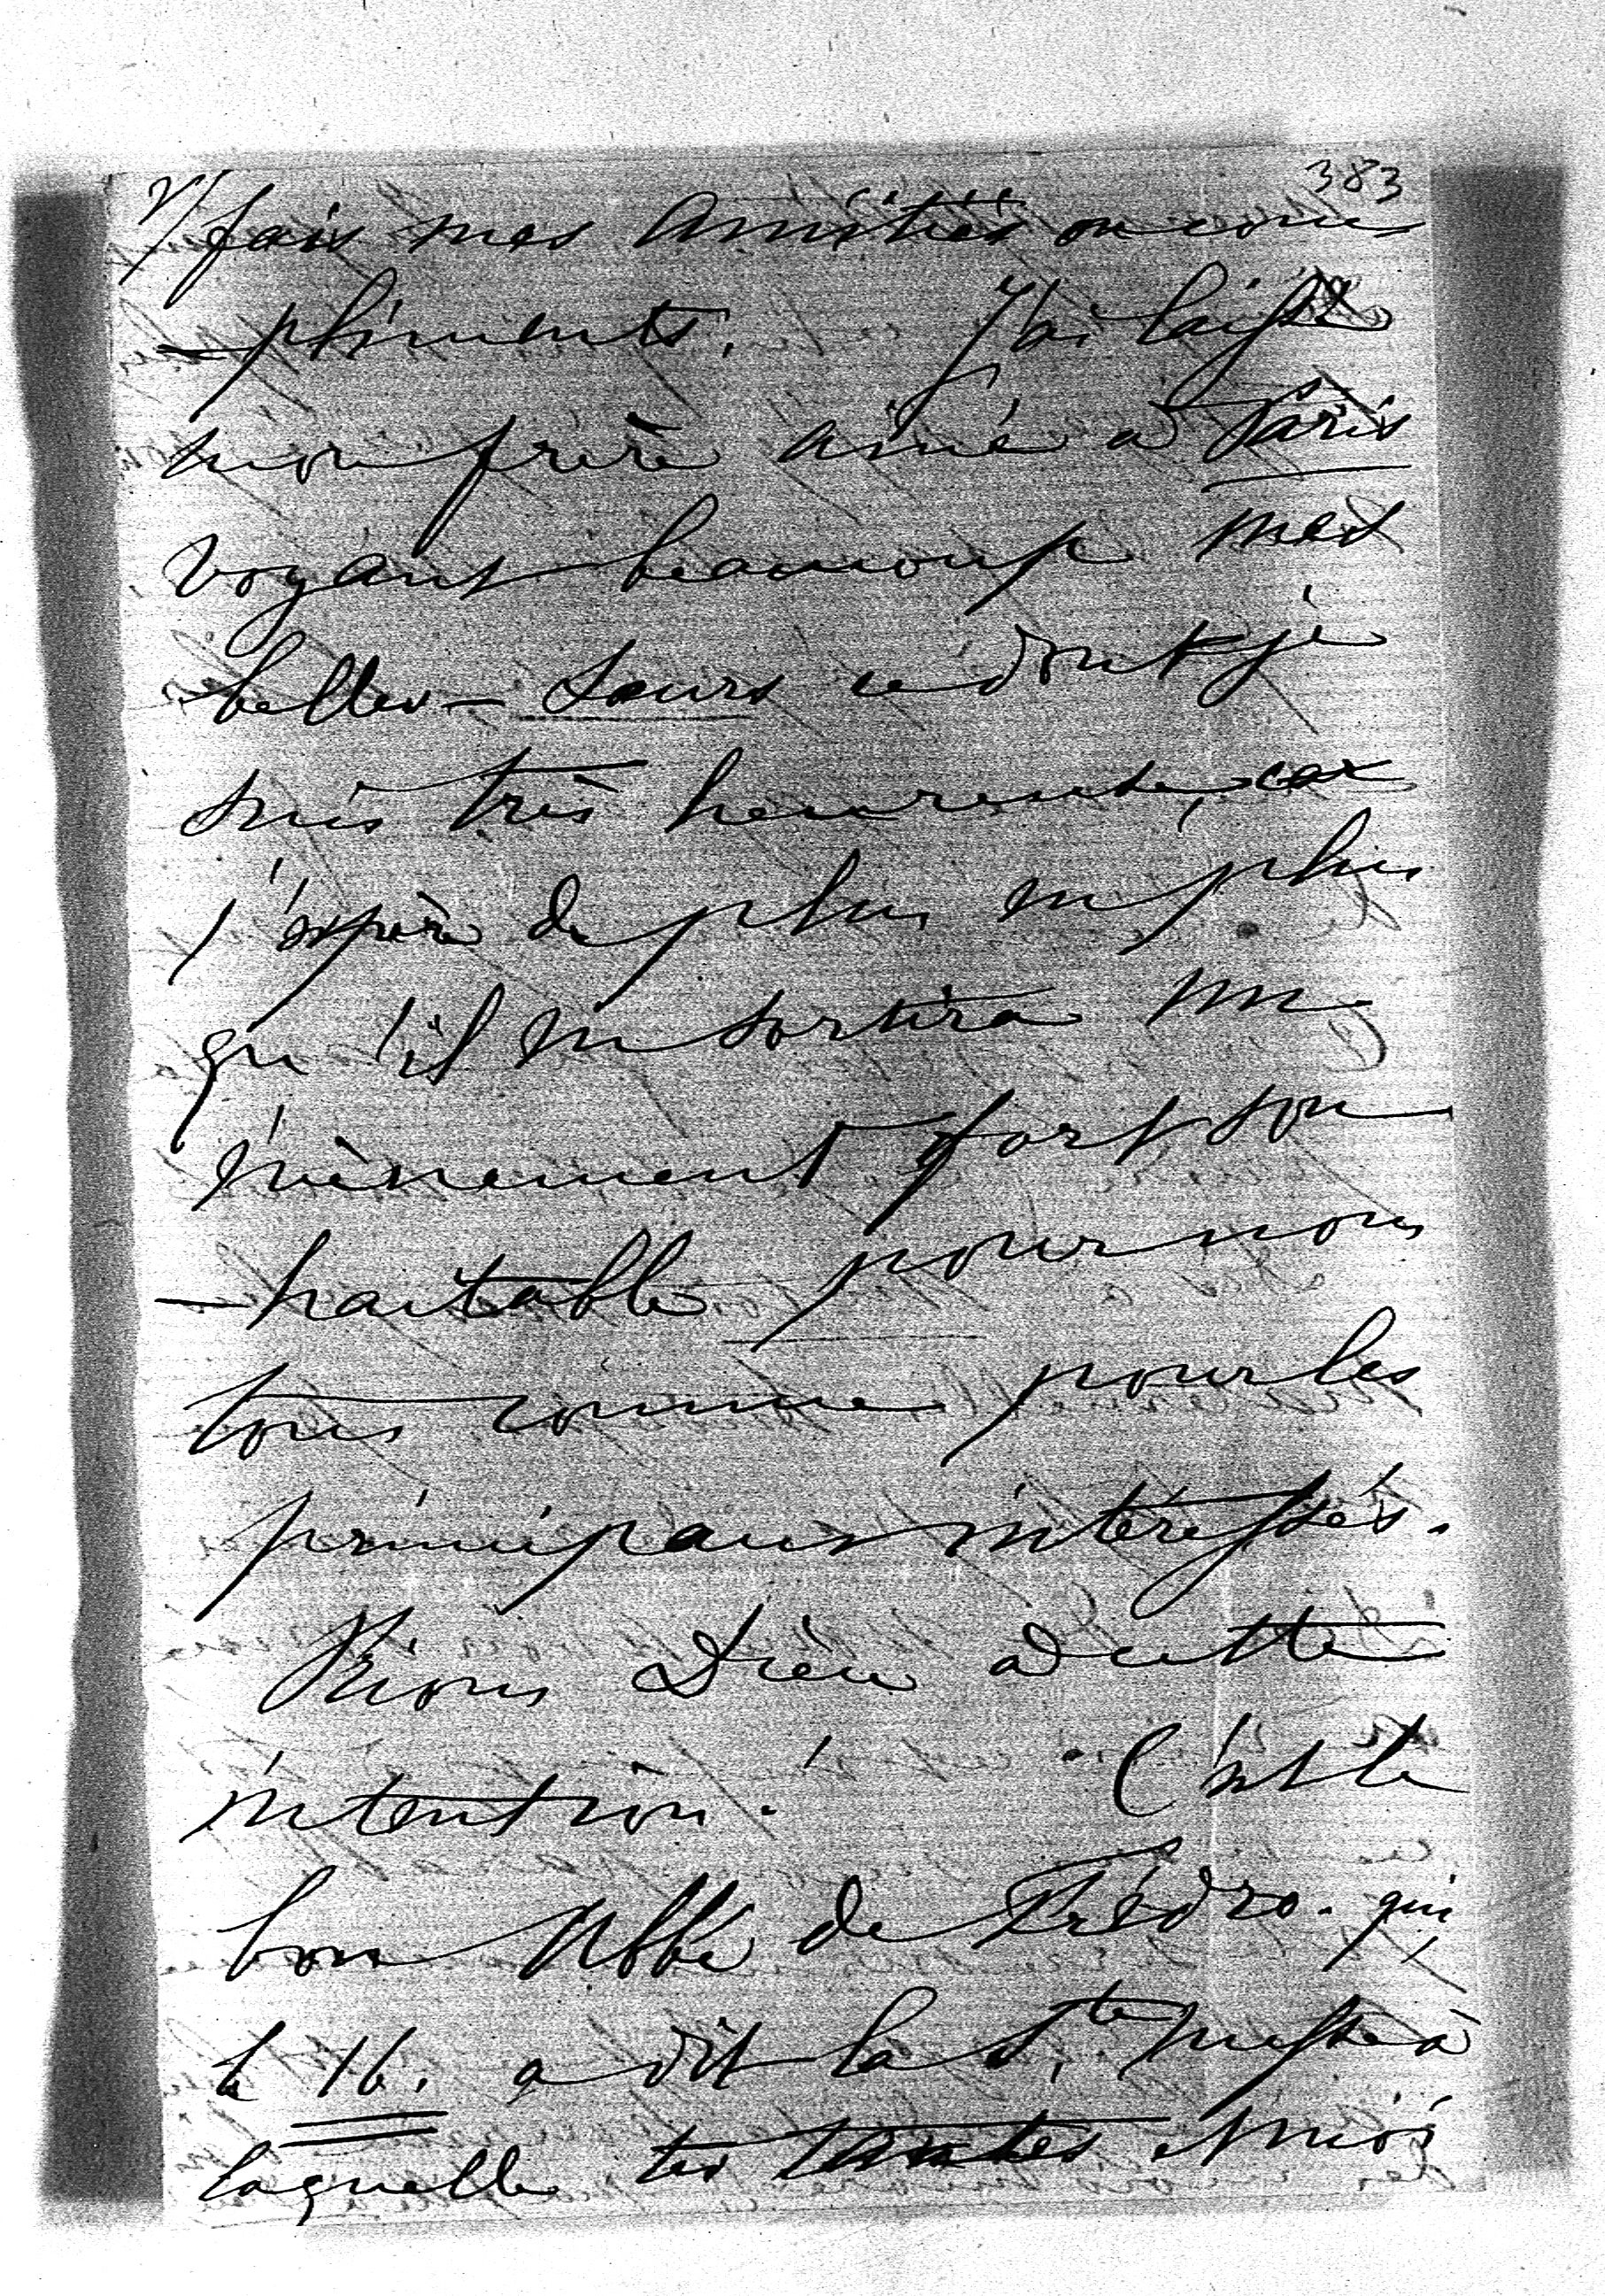 383
2/ fais mes amitiés ou com
-pliments. J'ai laissé
mon frère ainé à Paris
voyant beaucoup mes
belles-sœurs ce dont je
suis très heureuse, car
j'espère de plus en plus
qu'il en sortira un
évènement fort sou
-haitable pour nous
tous comme pour les
principaux intéressés.
Prions Dieu à cette
intention. C'est le
bon Abbé de qui
le 16. a dit la Ste messe à
laquelle tes tantes et moi